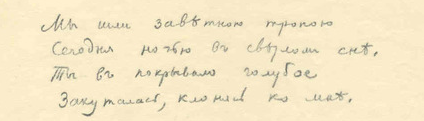 Мы шли завѣтною тропою
Сегодня ночью въ свѣтломъ снѣ.
Ты въ покрывало голубое
Закуталась, клонясь ко мнѣ.